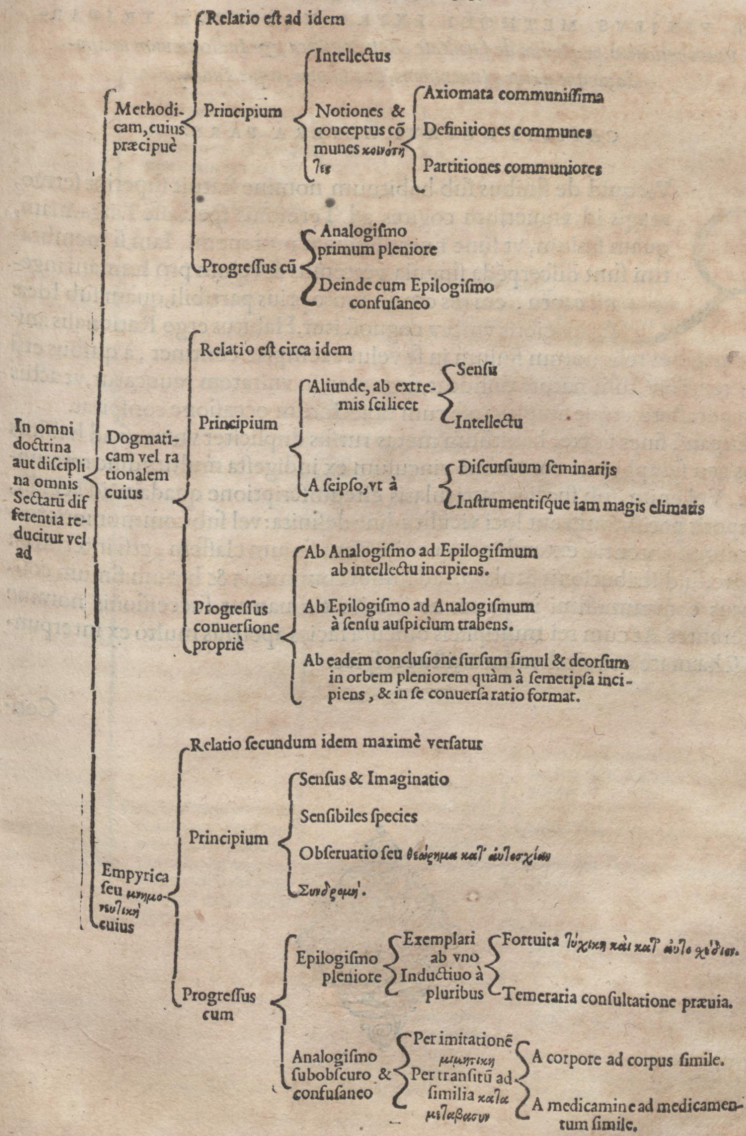 In omni
doctrina
aut discipli
na omnis
Sectarū dif
ferentia re-
ducitur vel
ad
Methodi-
cam, cuius
præcipuè
Relatio est ad idem
Principium
Intellectus
Notiones &
conceptus cō
munes κοινότη
τες
Axiomata communissima
Definitiones communes
Partitiones communiores
Progressus cū
Analogismo
primum pleniore
Deinde cum Epilogismo
confusaneo
Dogmati-
cam vel ra
tionalem
cuius
Relatio est circa idem
Principium
Aliunde, ab extre-
mis scilicet
Sensu
Intellectu
A seipso, vt à
Discursuum seminarijs
Instrumentisque iam magis elimatis
Progressus
conuersione
propriè
Ab Analogismo ad Epilogismum
ab intellectu incipiens.
Ab Epilogismo ad Analogismum
à sensu auspicium trahens.
Ab eadem conclusione sursum simul & deorsum
in orbem pleniorem quàm à semetipsa inci-
piens, & in se conuersa ratio format.
Empyrica
seu μνημο-
νευτικὴ
cuius
Relatio secundum idem maximè versatur
Principium
Sensus & Imaginatio
Sensibiles species
Obseruatio seu θεώρημα κατ' ἀυτοσχίαν
Συνδρομή.
Progressus
cum
Epilogismo
pleniore
Exemplari
ab vno
Inductiuo à
pluribus
Fortuita τύχικη καὶ κατ' ἀυτο χέδιον.
Temeraria consultatione præuia.
Analogismo
subobscuro &
confusaneo
Per imitationē
μιμητικη
Per transitū ad
similia κατα
μετάβασιν
A corpore ad corpus simile.
A medicamine ad medicamen-
tum simile.